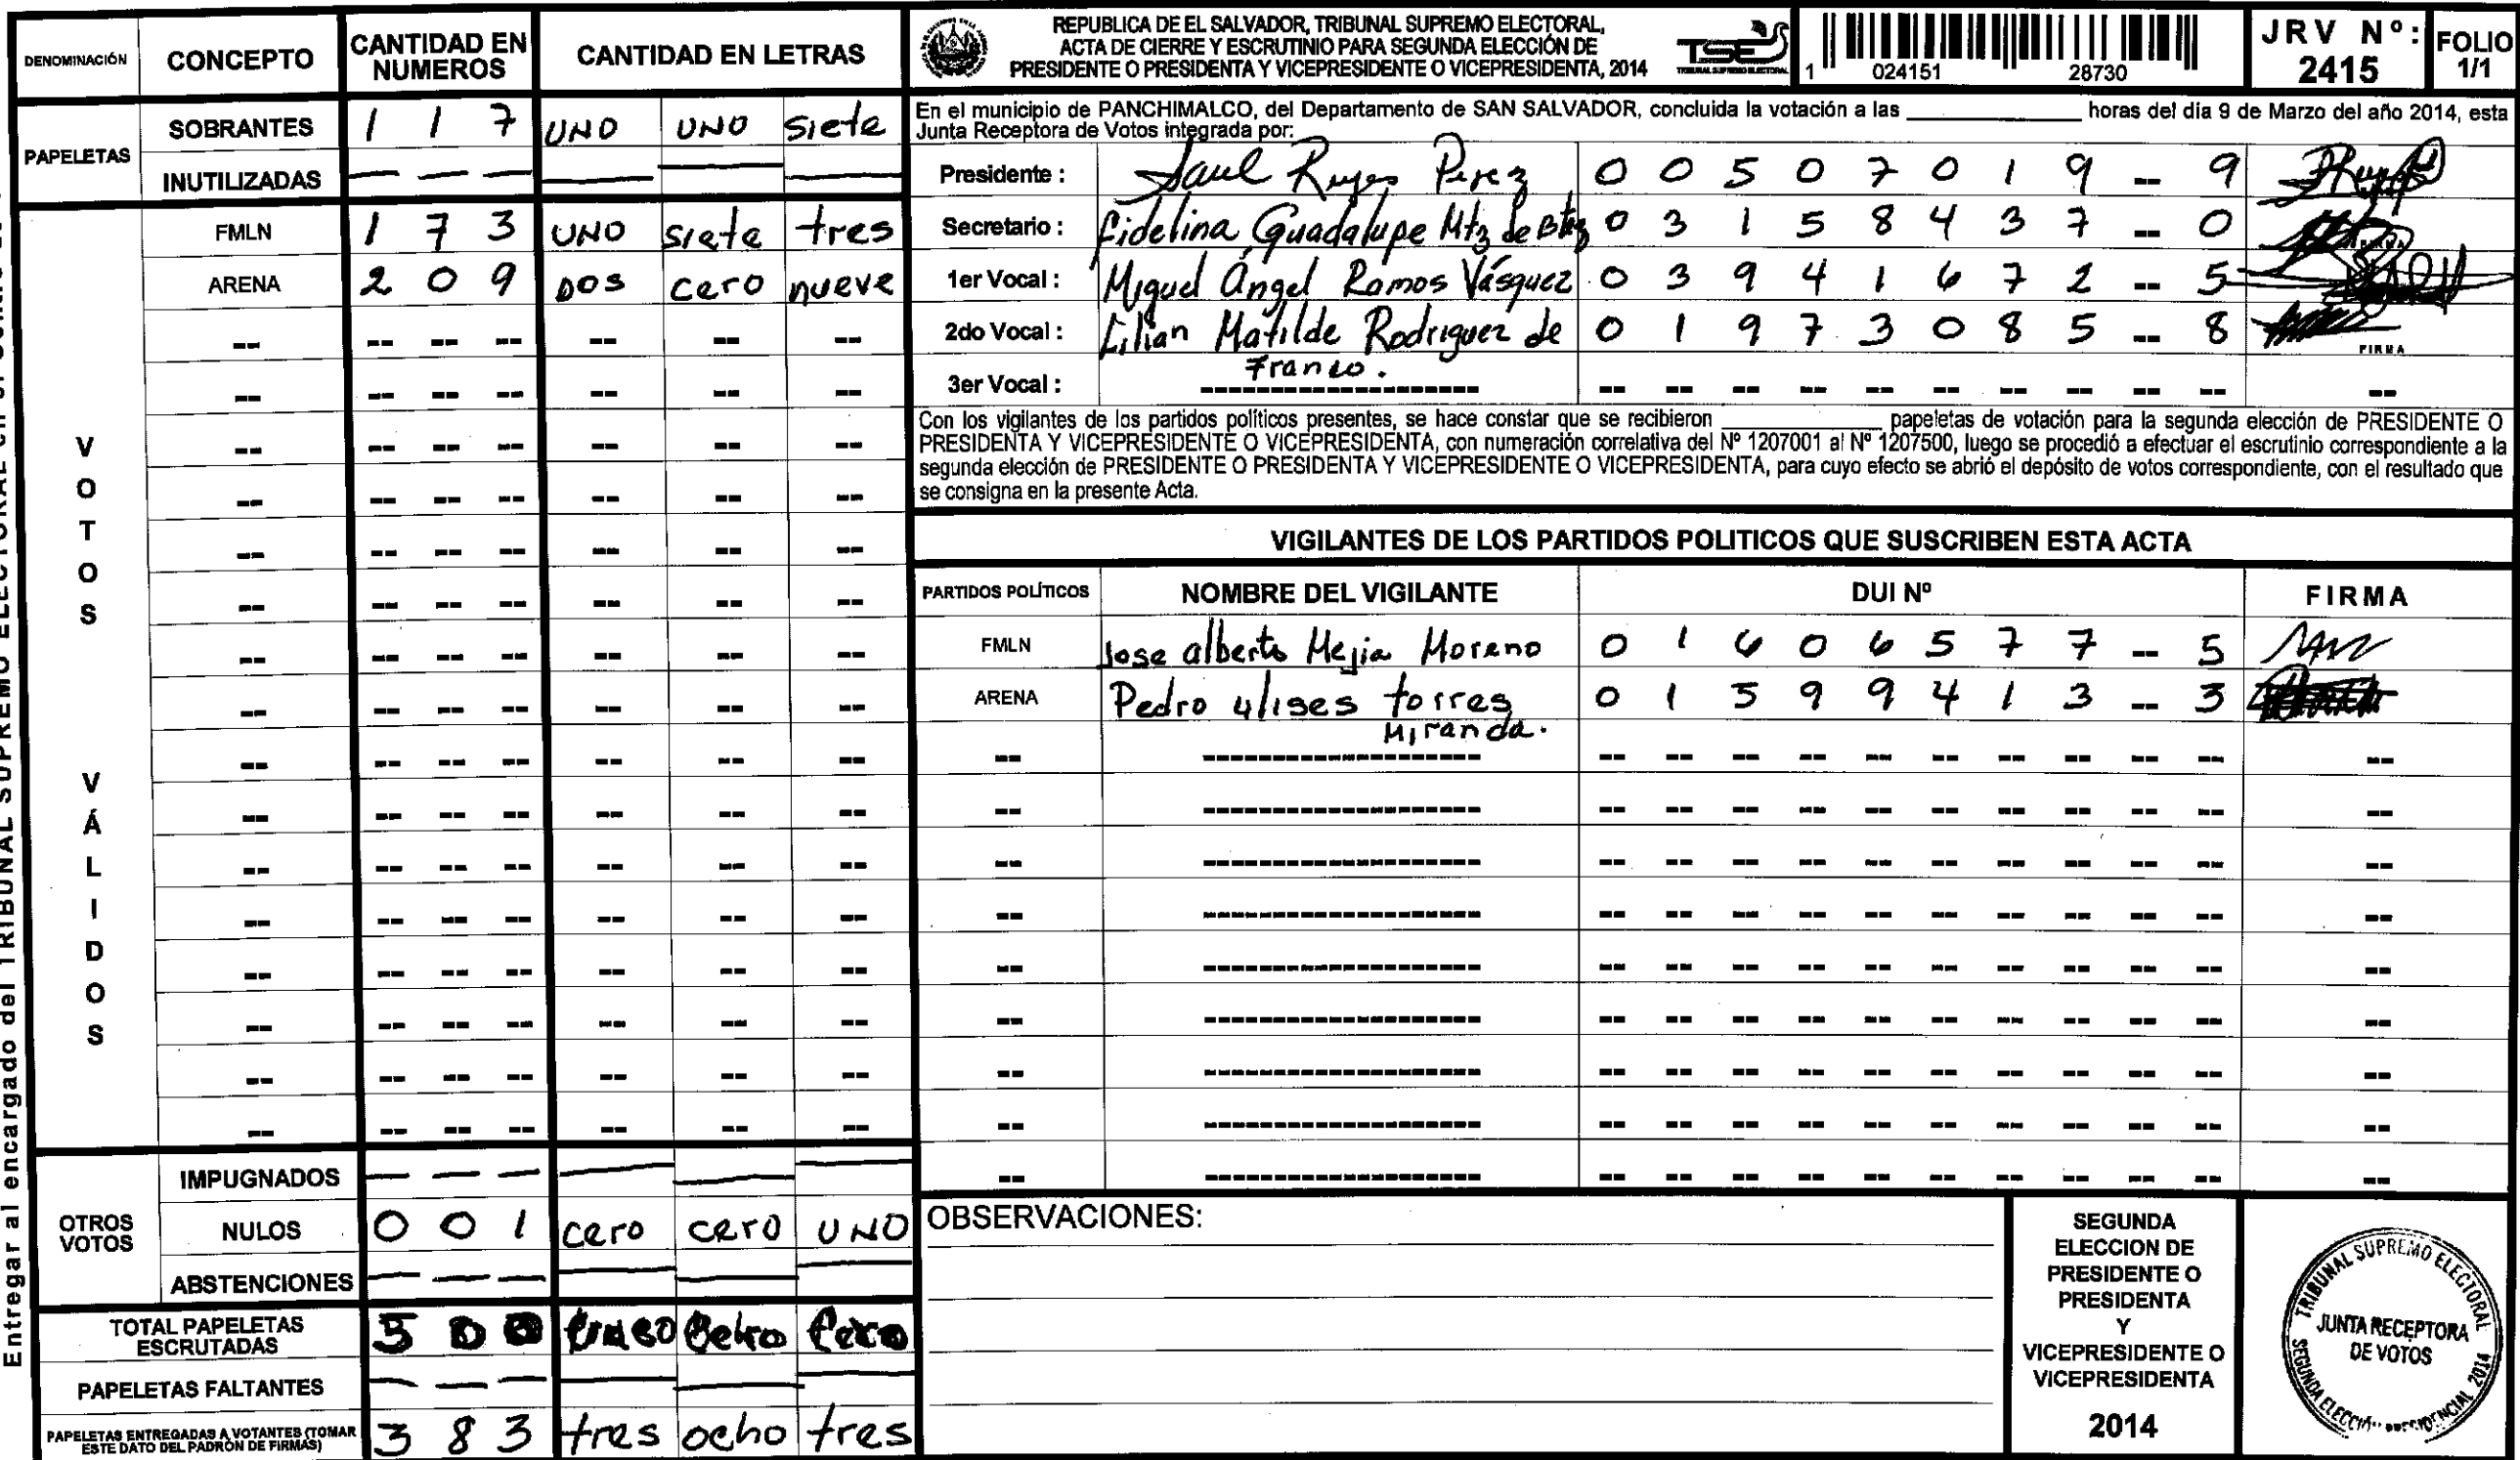 DENOMINACIÓN CONCEPTO CANTIDAD EN NUMEROS CANTIDAD EN LETRAS
PAPELETAS
SOBRANTES 1 1 7 UNO UNO siete
INUTILIZADAS — — — — — —
VOTOS VÁLIDOS
FMLN 1 7 3 UNO siete tres
ARENA 2 0 9 DOS cero nueve
OTROS VOTOS
IMPUGNADOS — — — — — —
NULOS 0 0 1 cero cero UNO
ABSTENCIONES — — — — — —
TOTAL PAPELETAS ESCRUTADAS 5 0 0 cinco cero cero
PAPELETAS FALTANTES — — — — — —
PAPELETAS ENTREGADAS A VOTANTES (TOMAR ESTE DATO DEL PADRÓN DE FIRMAS) 3 8 3 tres ocho tres
Entregar al encargado del TRIBUNAL SUPREMO ELECTORAL en el
REPUBLICA DE EL SALVADOR, TRIBUNAL SUPREMO ELECTORAL,
ACTA DE CIERRE Y ESCRUTINIO PARA SEGUNDA ELECCIÓN DE
PRESIDENTE O PRESIDENTA Y VICEPRESIDENTE O VICEPRESIDENTA, 2014
TSE
TRIBUNAL SUPREMO ELECTORAL
1 024151 28730
JRV Nº: 2415
FOLIO 1/1
En el municipio de PANCHIMALCO, del Departamento de SAN SALVADOR, concluida la votación a las ____________ horas del día 9 de Marzo del año 2014, esta
Junta Receptora de Votos integrada por:
Presidente : Saul Reyes Perez 0 0 5 0 7 0 1 9 -- 9
Secretario : Fidelina Guadalupe Mtz de 0 3 1 5 8 4 3 7 -- 0
1er Vocal : Miguel Ángel Ramos Vásquez 0 3 9 4 1 6 7 2 -- 5
2do Vocal : Lilian Matilde Rodriguez de Franco. 0 1 9 7 3 0 8 5 -- 8
FIRMA
3er Vocal : -- -- -- -- -- -- -- -- -- -- --
Con los vigilantes de los partidos políticos presentes, se hace constar que se recibieron ____________ papeletas de votación para la segunda elección de PRESIDENTE O
PRESIDENTA Y VICEPRESIDENTE O VICEPRESIDENTA, con numeración correlativa del Nº 1207001 al Nº 1207500, luego se procedió a efectuar el escrutinio correspondiente a la
segunda elección de PRESIDENTE O PRESIDENTA Y VICEPRESIDENTE O VICEPRESIDENTA, para cuyo efecto se abrió el depósito de votos correspondiente, con el resultado que
se consigna en la presente Acta.
VIGILANTES DE LOS PARTIDOS POLITICOS QUE SUSCRIBEN ESTA ACTA
PARTIDOS POLÍTICOS NOMBRE DEL VIGILANTE DUI Nº FIRMA
FMLN Jose alberto Mejia Moreno 0 1 6 0 6 5 7 7 -- 5
ARENA Pedro ulises torres Miranda. 0 1 5 9 9 4 1 3 -- 3
OBSERVACIONES:
SEGUNDA
ELECCION DE
PRESIDENTE O
PRESIDENTA
Y
VICEPRESIDENTE O
VICEPRESIDENTA
2014
TRIBUNAL SUPREMO ELECTORAL
JUNTA RECEPTORA
DE VOTOS
SEGUNDA ELECCIÓN PRESIDENCIAL 2014